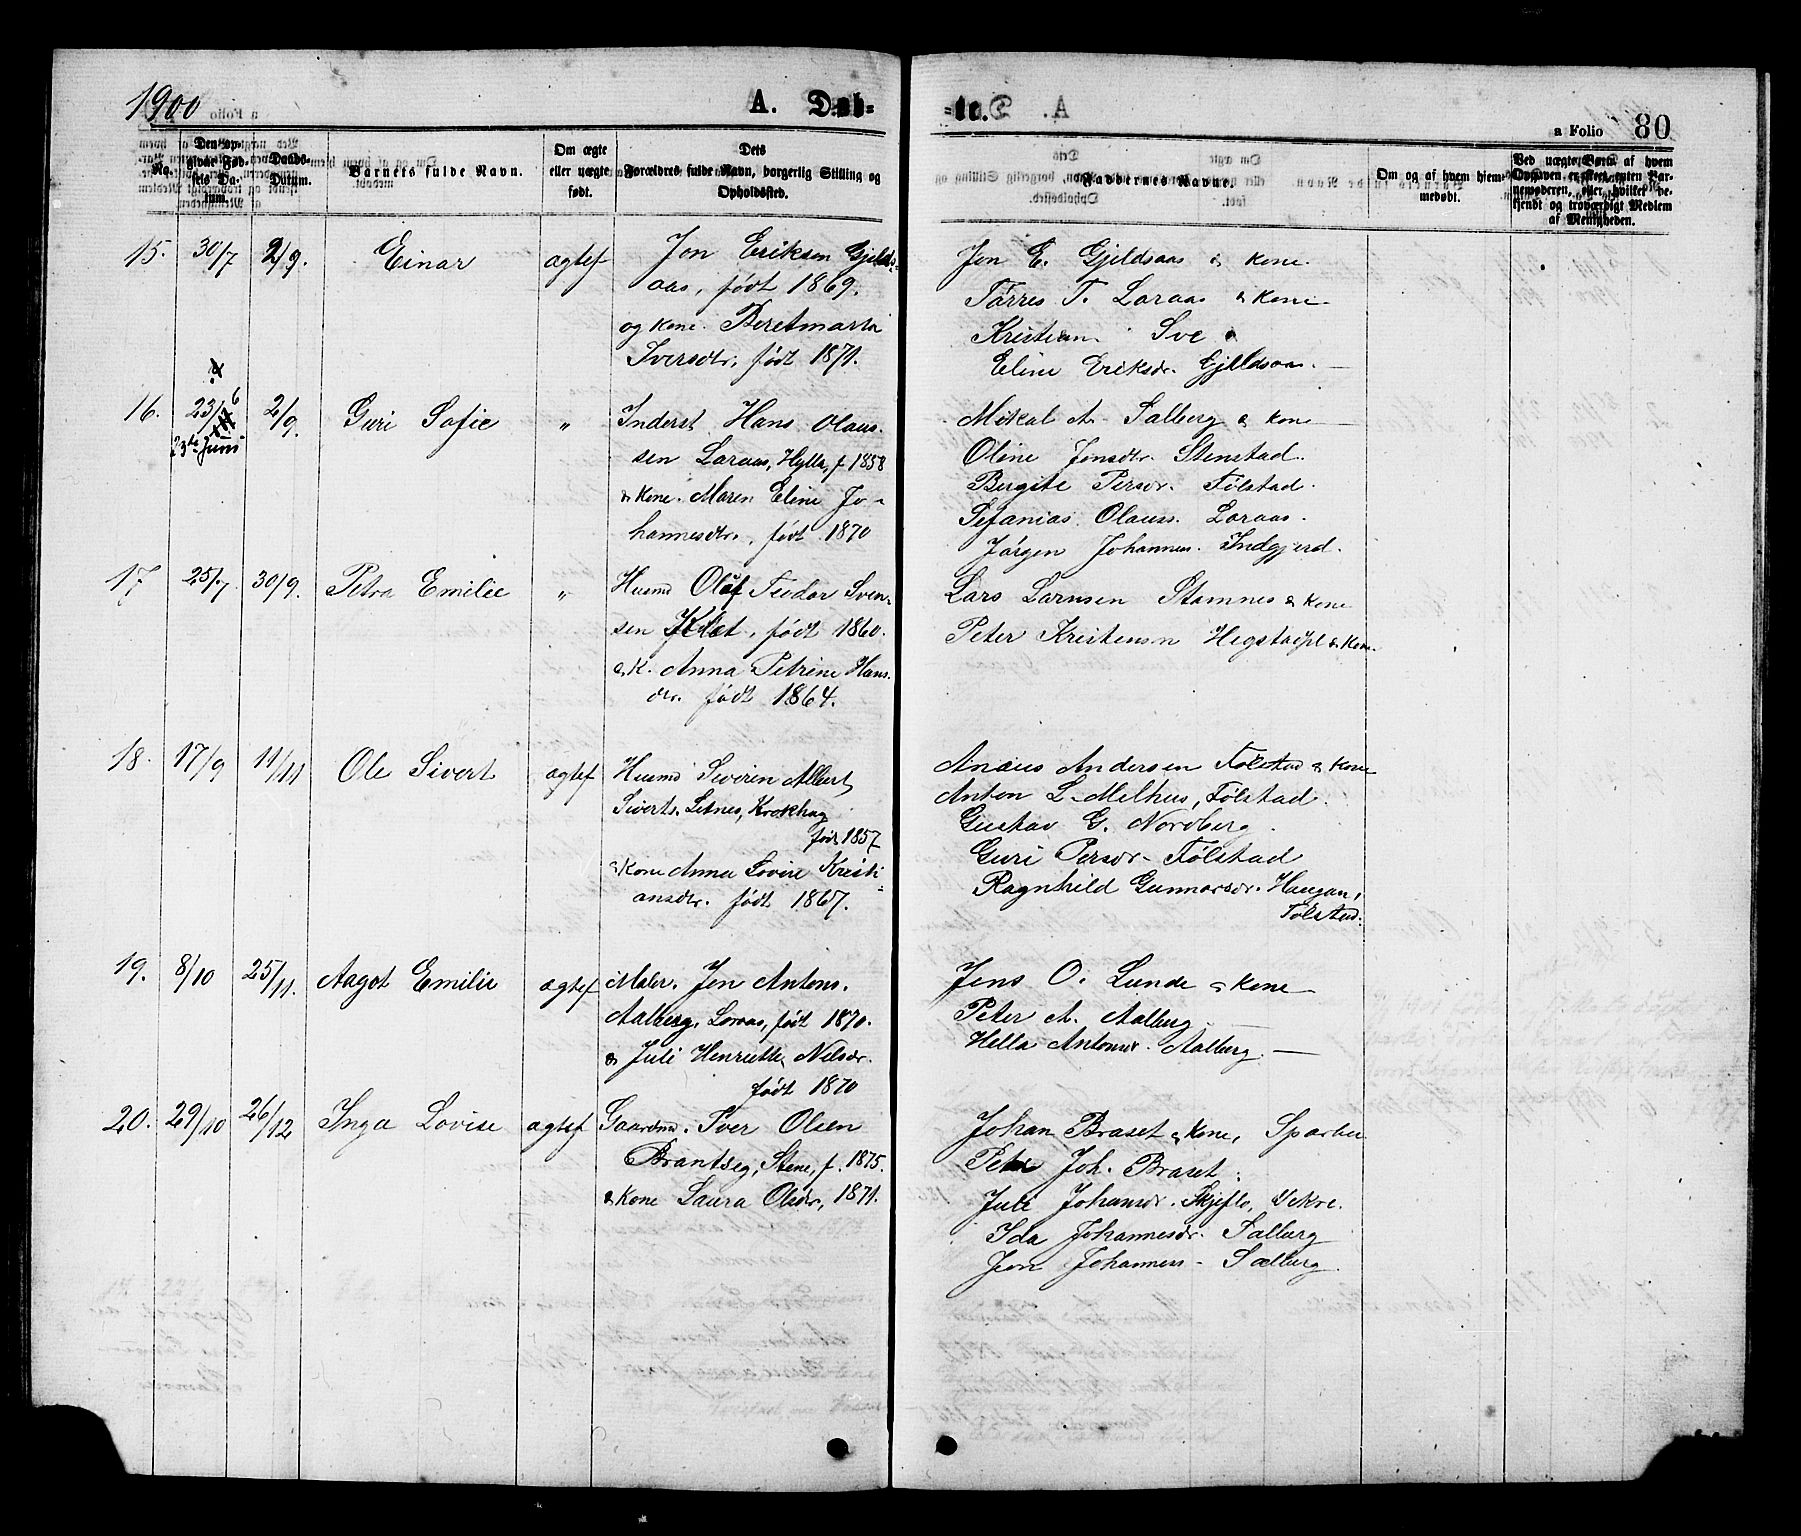 1900
A. Døb-
te.
a Folio 80
No.
Den opgivne Fødsels Datum.
Daabs-Datum.
Barnets fulde Navn.
Om ægte eller uægte født.
Dets Forældres fulde Navn, borgerlig Stilling og Opholdssted.
Faddernes Navne.
Om og af hvem hjemmedøbt.
Ved uægte Børn af hvem Opgaven er skeet, enten Barnemoderen, eller hvilket bekjendt og troværdigt Medlem af Menigheden.
15. 30/7 2/9. Einar agtef Jon Eriksen Gjelds-
aas, født 1869.
og kone. Beretmarta
Iversdtr. født 1871.
Jon E. Gjeldsaas & kone.
Tørres T. Loraas & kone
Kristian Sve
Eline Eriksdr. Gjeldsaas.
16. 23/6 2/9 Guri Sofie „ Inderst Hans Olaus-
23de Juni
sen Loraas, Hylla, f 1858
& kone. Maren Eline Jo-
hannesdtr., født 1870
Mikal A. Salberg & kone
Oline Jonsdtr. Stenstad.
Bergite Persdr. Følstad.
Sefanias Olauss. Loraas.
Jørgen Johannes. Indgjerd.
17 25/7 30/9. Petra Emilie „ Husmd Olaf Teodor Sven-
sen Klet, født 1860.
& K. Anna Petrine Hans.
dtr. født 1864.
Lars Larnsen Stamnes & kone
Peter Kristensn Hegstad pl & kone
18. 17/9 11/11 Ole Sivert agtef Husmd Severin Albert
Siverts. Letnes, Krokhag
født 1857
& kone Anna Lovise Kristi-
ansdtr. født 1867.
Anæus Andersen Følstad & kone
Anton L. Melhus, Følstad.
Gustav G. Nordberg.
Guri Persdr. Følstad
Ragnhild Gunnarsdr. Haugan,
Følstad.
19. 8/10 25/11. Aagot Emilie agtef Maler. Jon Antons.
Aalberg, Loraas, født 1870.
& Juli Henriette Nilsdr.
født 1870
Jens O. Lunde & kone
Peter A. Aalberg
Hella Antonsdr. Aalberg.
20. 29/10 26/12 Inga Lovise agtef Gaardmd. Iver Olsen
Brantseg, Stene, f. 1875.
& kone Laura Olsdr, 1871.
Johan Braset & kone, Sparbu
Peter Joh. Braset.
Juli Johansdr. Skjefte, Vekre.
Ida Johannesdr. Salberg
Jon Johanness. Salberg.